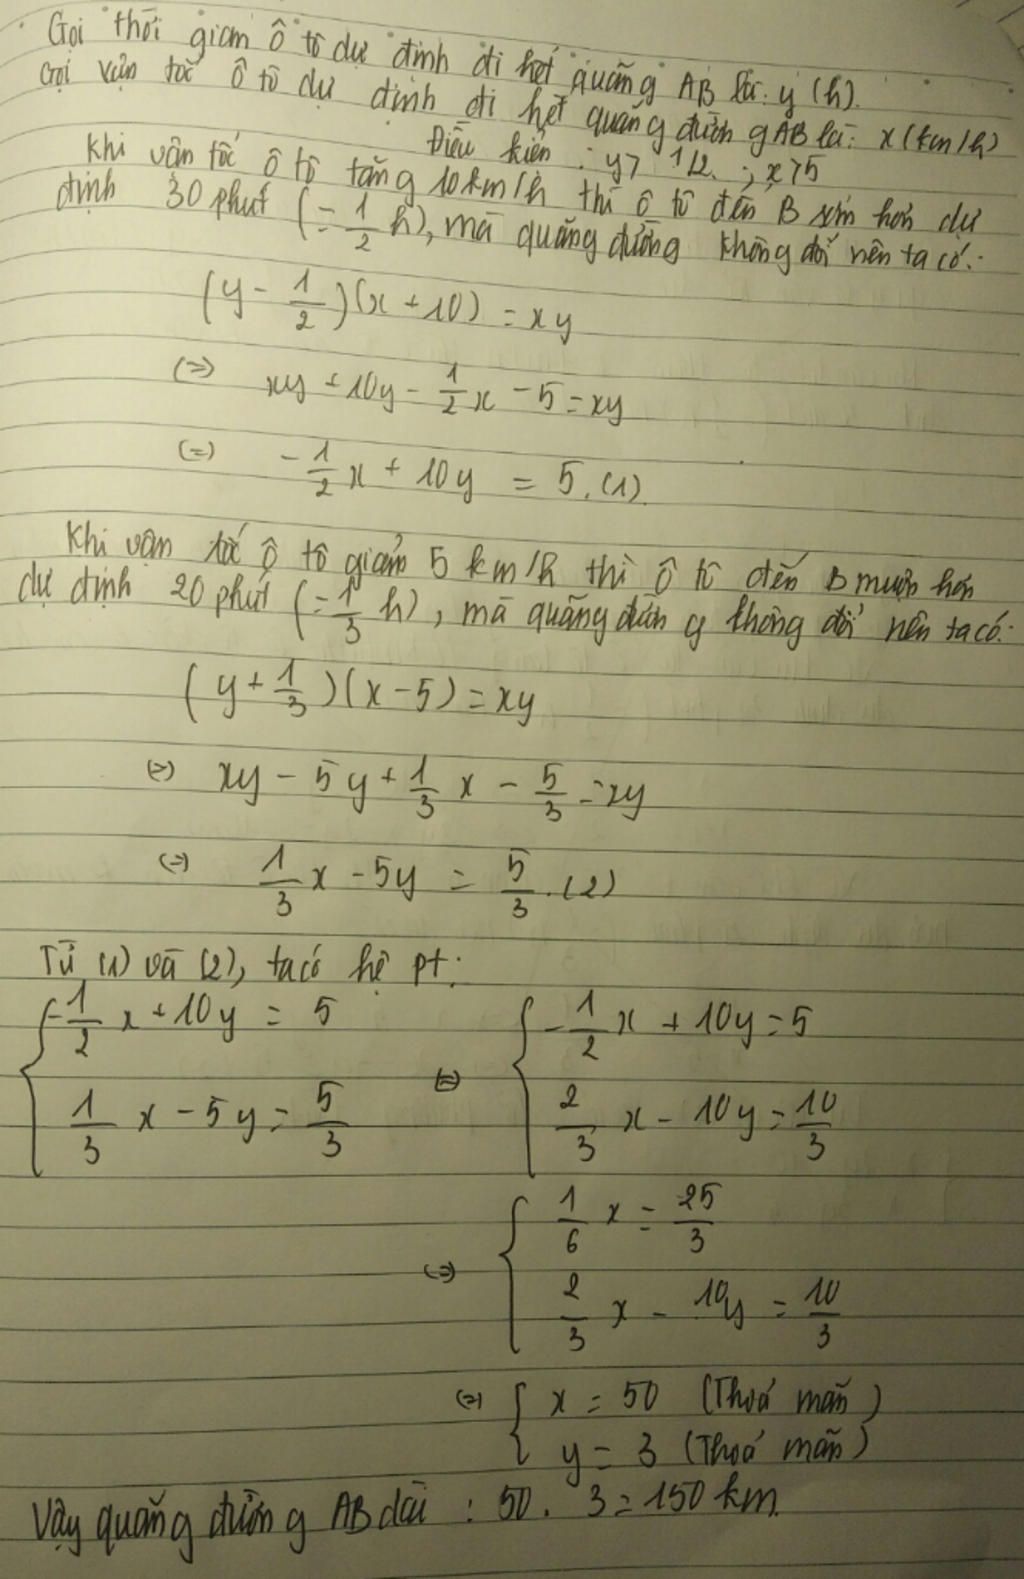 Gọi thời gian ô tô dự định đi hết quãng AB là: y (h).
Gọi vận tốc ô tô dự định đi hết quãng đường AB là: x (km/h)
Điều kiện: y > 1/2 ; x > 5
Khi vận tốc ô tô tăng 10 km/h thì ô tô đến B sớm hơn dự
định 30 phút (= 1/2 h), mà quãng đường không đổi nên ta có:
(y - 1/2)(x + 10) = xy
(=) xy + 10y - 1/2 x - 5 = xy
(=) - 1/2 x + 10y = 5. (1).
Khi vận tốc ô tô giảm 5 km/h thì ô tô đến B muộn hơn
dự định 20 phút (= 1/3 h), mà quãng đường không đổi nên ta có:
(y + 1/3)(x - 5) = xy
(=) xy - 5y + 1/3 x - 5/3 = xy
(=) 1/3 x - 5y = 5/3 . (2)
Từ (1) và (2), ta có hệ pt:
{ - 1/2 x + 10y = 5 (=) { - 1/2 x + 10y = 5
1/3 x - 5y = 5/3 2/3 x - 10y = 10/3
(=) { 1/6 x = 25/3
2/3 x - 10y = 10/3
(=) { x = 50 (Thoả mãn)
y = 3 (Thoả mãn)
Vậy quãng đường AB dài : 50 . 3 = 150 km.